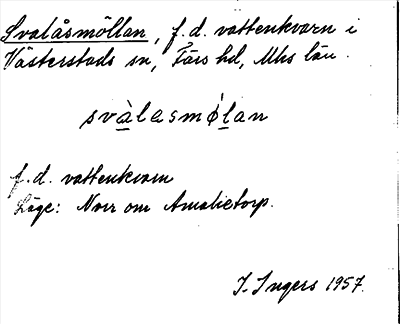 Svalåsmöllan, f.d. vattenkvarn i
Västerstads sn, Färs hd, Mhs län.
svàlasmǿlan
f.d. vattenkvarn
Läge: Norr om Amalietorp.
I. Ingers 1957.